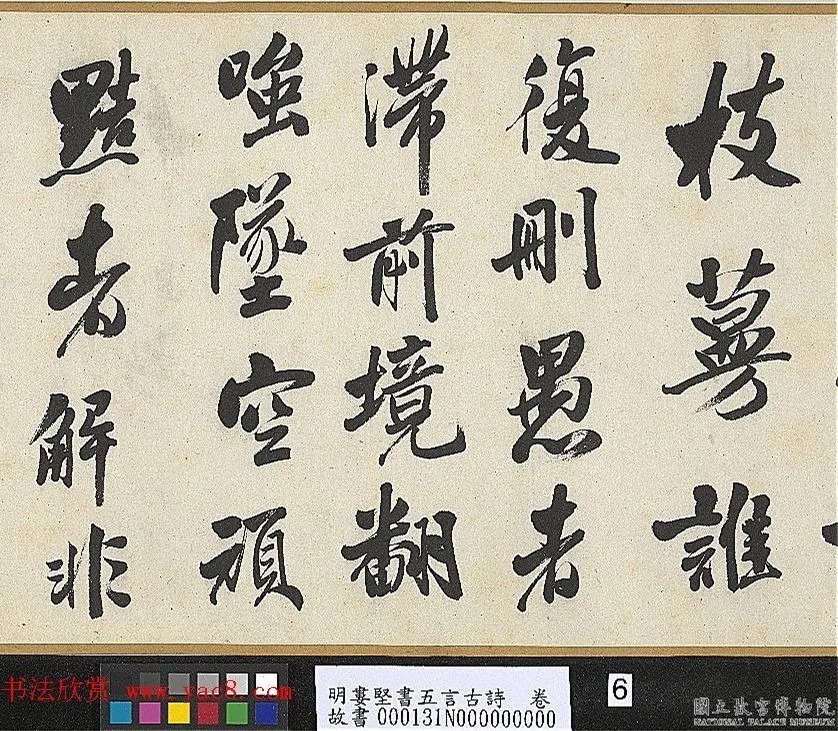 枝蔓誰
復刪愚者
滯前境翻
嗤墜空頑
黠者解非
书法欣赏 www.yac8.com
明婁堅書五言古詩 卷
故書000131N000000000
6
國立故宮博物院
NATIONAL PALACE MUSEUM